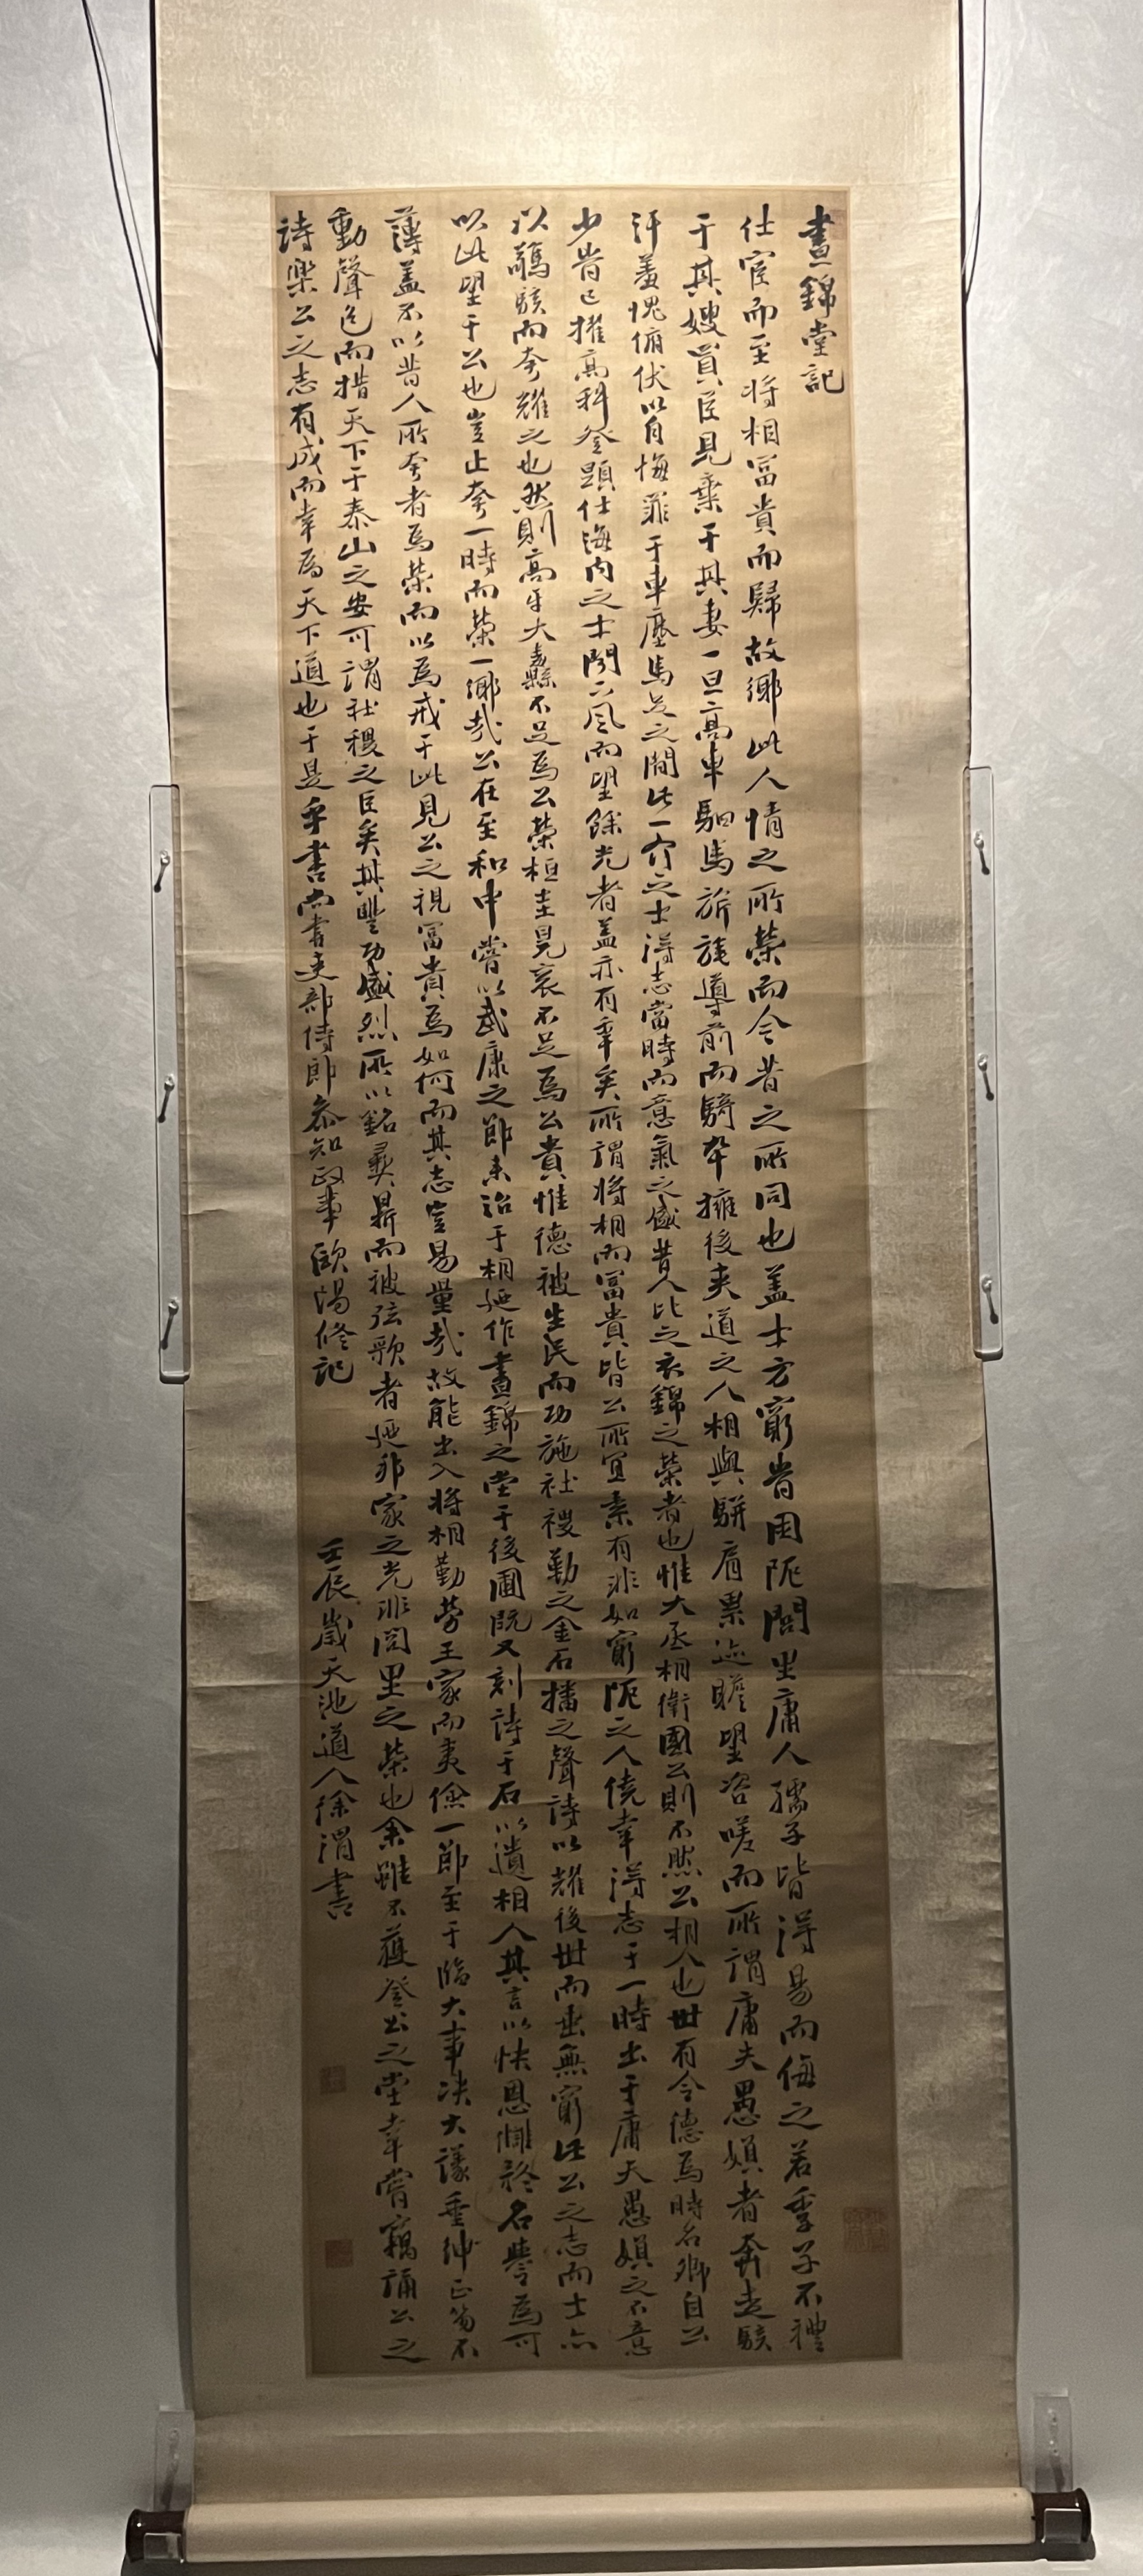 晝錦堂記
仕宦而至將相富貴而歸故鄉此人情之所榮而今昔之所同也蓋士方窮時困阨閭里庸人孺子皆得易而侮之若季子不禮
于其嫂買臣見棄于其妻一旦高車駟馬旂旄導前而騎卒擁後夾道之人相與駢肩累迹瞻望咨嗟而所謂庸夫愚婦者奔走駭
汗羞愧俯伏以自悔罪于車塵馬足之間此一介之士得志當時而意氣之盛昔人比之衣錦之榮者也惟大丞相衛國公則不然公相人也世有令德為時名卿自公
少時已擢高科登顯仕海内之士聞下風而望餘光者蓋亦有年矣所謂將相而富貴皆公所宜素有非如窮阨之人僥幸得志于一時出于庸夫愚婦之不意
以驚駭而夸耀之也然則高牙大纛不足為公榮桓圭冕衮不足為公貴惟德被生民而功施社稷勒之金石播之聲詩以耀後世而垂無窮此公之志而士亦
以此望于公也豈止夸一時而榮一鄉哉公在至和中嘗以武康之節來治于相迺作晝錦之堂于後圃既又刻詩于石以遺相人其言以快恩讎矜名譽為可
薄蓋不以昔人所夸者為榮而以為戒于此見公之視富貴為如何而其志豈易量哉故能出入將相勤勞王家而夷險一節至于臨大事決大議垂紳正笏不
動聲色而措天下于泰山之安可謂社稷之臣矣其豐功盛烈所以銘彝鼎而被弦歌者迺邦家之光非閭里之榮也余雖不獲登公之堂幸嘗竊誦公之
詩樂公之志有成而幸為天下道也于是乎書尚書吏部侍郎參知政事歐陽修記
壬辰歲天池道人徐渭書